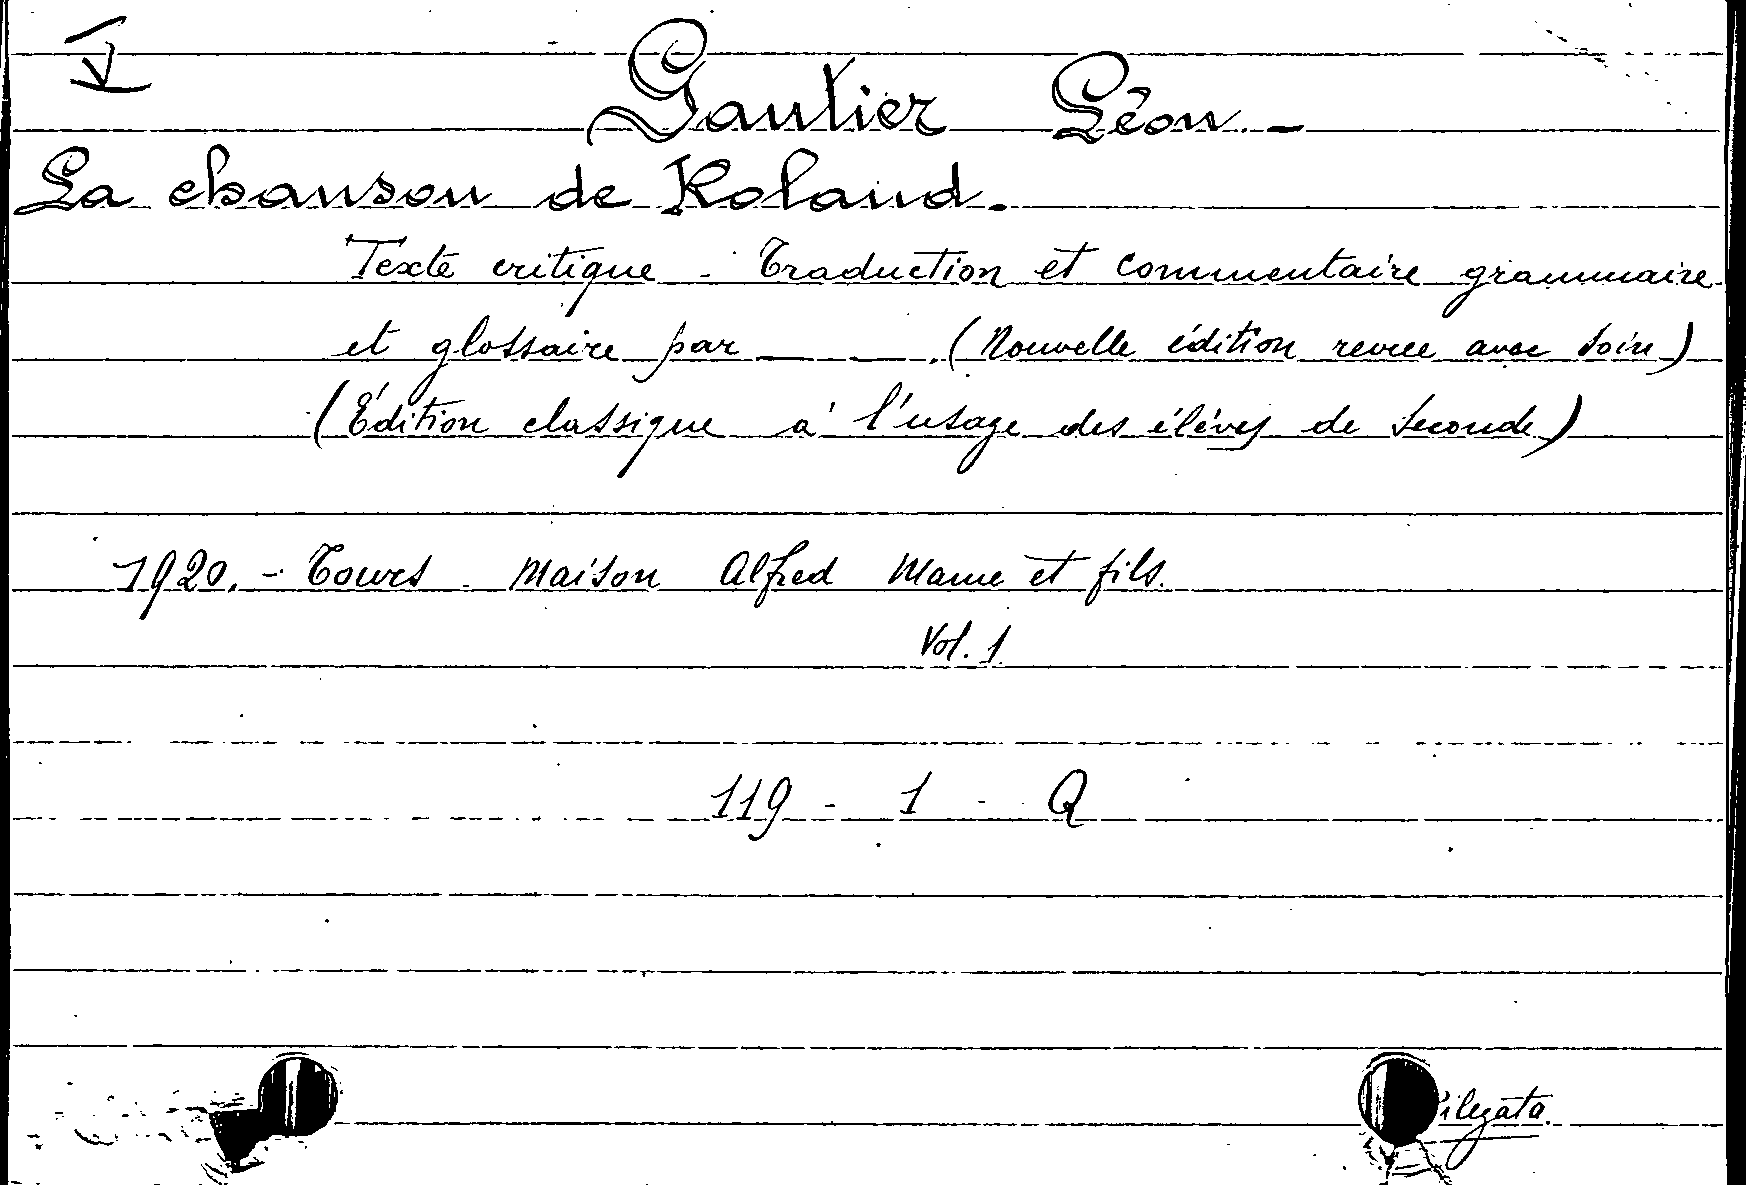 Gautier Léon. -
La chanson de Roland.
Texte critique - Traduction et commentaire grammaire
et glossaire par — — . (Nouvelle édition revue avec soin)
(Édition classique à l'usage des élèves de Seconde)
1920. - Tours - Maison Alfred Mame et fils.
Vol. 1
119 - 1 - Q